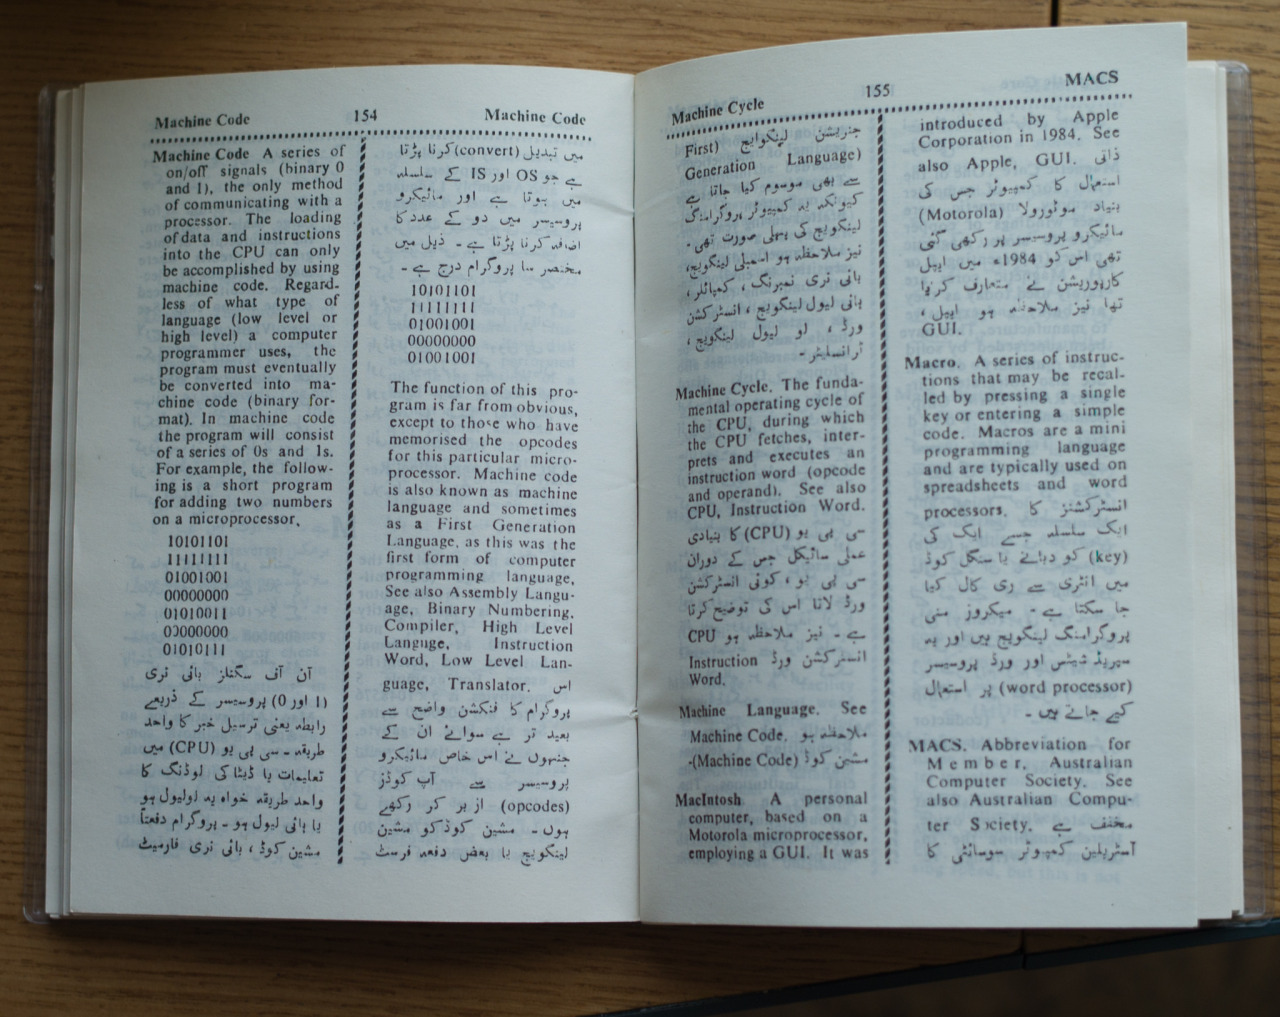 Machine Code 154 Machine Code
Machine Code A series of
on/off signals (binary 0
and 1), the only method
of communicating with a
processor. The loading
of data and instructions
into the CPU can only
be accomplished by using
machine code. Regard-
less of what type of
language (low level or
high level) a computer
programmer uses, the
program must eventually
be converted into ma-
chine code (binary for-
mat). In machine code
the program will consist
of a series of 0s and 1s.
For example, the follow-
ing is a short program
for adding two numbers
on a microprocessor.
10101101
11111111
01001001
00000000
01010011
00000000
01010111
آن آف سگنلز بائی نری
(1 اور 0) پروسیسر کے ذریعے
رابطہ یعنی ترسیل خبر کا واحد
طریقہ ۔ سی پی یو (CPU) میں
تعلیمات یا ڈیٹا کی لوڈنگ کا
واحد طریقہ خواہ یہ لولیول ہو
یا ہائی لیول ہو ۔ پروگرام دفعتاً
مشین کوڈ ، بائی نری فارمیٹ
میں تبدیل (convert) کرنا پڑتا
ہے جو OS اور IS کے سلسلہ
میں ہوتا ہے اور مائیکرو
پروسیسر میں دو کے عدد کا
اضافہ کرنا پڑتا ہے ۔ ذیل میں
مختصر سا پروگرام درج ہے ۔
10101101
11111111
01001001
00000000
01001001
The function of this pro-
gram is far from obvious,
except to those who have
memorised the opcodes
for this particular micro-
processor. Machine code
is also known as machine
language and sometimes
as a First Generation
Language, as this was the
first form of computer
programming language,
See also Assembly Langu-
age, Binary Numbering,
Compiler, High Level
Languge, Instruction
Word, Low Level Lan-
guage, Translator. اس
پروگرام کا فنکشن واضح سے
بعید تر ہے سوائے ان کے
جنہوں نے اس خاص مائیکرو
پروسیسر سے آپ کوڈز
(opcodes) ازبر کر رکھے
ہوں ۔ مشین کوڈ کو مشین
لینگویج یا بعض دفعہ فرسٹ
Machine Cycle 155 MACS
جنریشن لینگوایج (First
Generation Language)
سے بھی موسوم کیا جاتا ہے
کیونکہ یہ کمپیوٹر پروگرامنگ
لینگویج کی پہلی صورت تھی ۔
نیز ملاحظہ ہو اسمبلی لینگویج،
بائی نری نمبرنگ ، کمپائلر،
ہائی لیول لینگویج ، انسٹرکشن
ورڈ ، لو لیول لینگویج ،
ٹرانسلیٹر ۔
Machine Cycle. The funda-
mental operating cycle of
the CPU, during which
the CPU fetches, inter-
prets and executes an
instruction word (opcode
and operand). See also
CPU, Instruction Word.
سی پی یو (CPU) کا بنیادی
عملی سائیکل جس کے دوران
سی پی یو ، کوئی انسٹرکشن
ورڈ لاتا اس کی توضیح کرتا
ہے ۔ نیز ملاحظہ ہو CPU
انسٹرکشن ورڈ Instruction
Word.
Machine Language. See
Machine Code. ملاحظہ ہو
مشین کوڈ (Machine Code)-
MacIntosh A personal
computer, based on a
Motorola microprocessor,
employing a GUI. It was
introduced by Apple
Corporation in 1984. See
also Apple, GUI. ذاتی
استعمال کا کمپیوٹر جس کی
بنیاد موٹورولا (Motorola)
مائیکرو پروسیسر پر رکھی گئی
تھی اس کو 1984ء میں ایپل
کارپوریشن نے متعارف کرایا
تھا نیز ملاحظہ ہو ایپل ،
GUI.
Macro. A series of instruc-
tions that may be recal-
led by pressing a single
key or entering a simple
code. Macros are a mini
programming language
and are typically used on
spreadsheets and word
processors. انسٹرکشنز کا
ایک سلسلہ جسے ایک کی
(key) کو دبانے یا سنگل کوڈ
میں انٹری سے ری کال کیا
جا سکتا ہے ۔ میکروز منی
پروگرامنگ لینگویج ہیں اور یہ
سپریڈ شیٹس اور ورڈ پروسیسر
(word processor) پر استعمال
کیے جاتے ہیں ۔
MACS. Abbreviation for
Member, Australian
Computer Society. See
also Australian Compu-
ter Society. مخفف ہے
آسٹریلین کمپیوٹر سوسائٹی کا